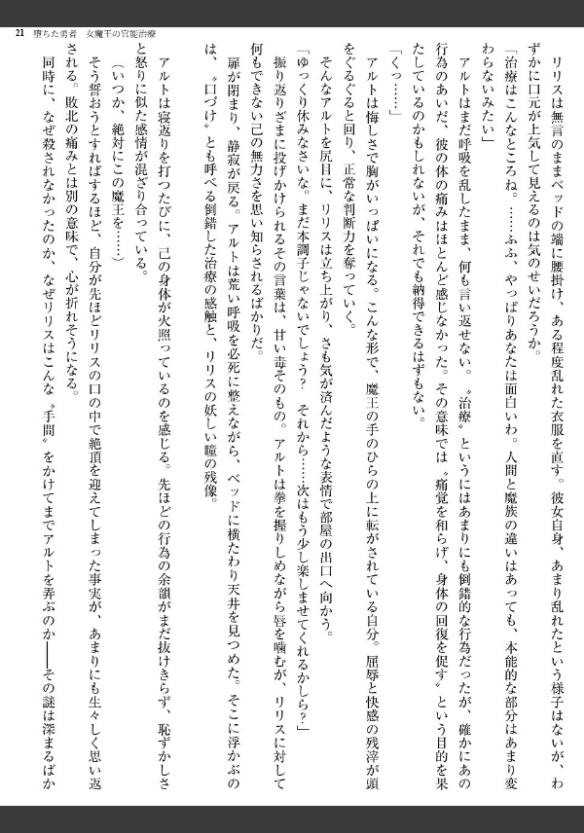 21 堕ちた勇者 女魔王の官能治療
リリスは無言のままベッドの端に腰掛け、ある程度乱れた衣服を直す。彼女自身、あまり乱れたという様子はないが、わ
ずかに口元が上気して見えるのは気のせいだろうか。
「治療はこんなところね。……ふふ、やっぱりあなたは面白いわ。人間と魔族の違いはあっても、本能的な部分はあまり変
わらないみたい」
アルトはまだ呼吸を乱したまま、何も言い返せない。〝治療〟というにはあまりにも倒錯的な行為だったが、確かにあの
行為のあいだ、彼の体の痛みはほとんど感じなかった。その意味では〝痛覚を和らげ、身体の回復を促す〟という目的を果
たしているのかもしれないが、それでも納得できるはずもない。
「くっ……」
アルトは悔しさで胸がいっぱいになる。こんな形で、魔王の手のひらの上に転がされている自分。屈辱と快感の残滓が頭
をぐるぐると回り、正常な判断力を奪っていく。
そんなアルトを尻目に、リリスは立ち上がり、さも気が済んだような表情で部屋の出口へ向かう。
「ゆっくり休みなさいな。まだ本調子じゃないでしょう? それから……次はもう少し楽しませてくれるかしら?」
振り返りざまに投げかけられるその言葉は、甘い毒そのもの。アルトは拳を握りしめながら唇を噛むが、リリスに対して
何もできない己の無力さを思い知らされるばかりだ。
扉が閉まり、静寂が戻る。アルトは荒い呼吸を必死に整えながら、ベッドに横たわり天井を見つめた。そこに浮かぶの
は、〝口づけ〟とも呼べる倒錯した治療の感触と、リリスの妖しい瞳の残像。
アルトは寝返りを打つたびに、己の身体が火照っているのを感じる。先ほどの行為の余韻がまだ抜けきらず、恥ずかしさ
と怒りに似た感情が混ざり合っている。
(いつか、絶対にこの魔王を……)
そう誓おうとすればするほど、自分が先ほどリリスの口の中で絶頂を迎えてしまった事実が、あまりにも生々しく思い返
される。敗北の痛みとは別の意味で、心が折れそうになる。
同時に、なぜ殺されなかったのか、なぜリリスはこんな〝手間〟をかけてまでアルトを弄ぶのか――その謎は深まるばか